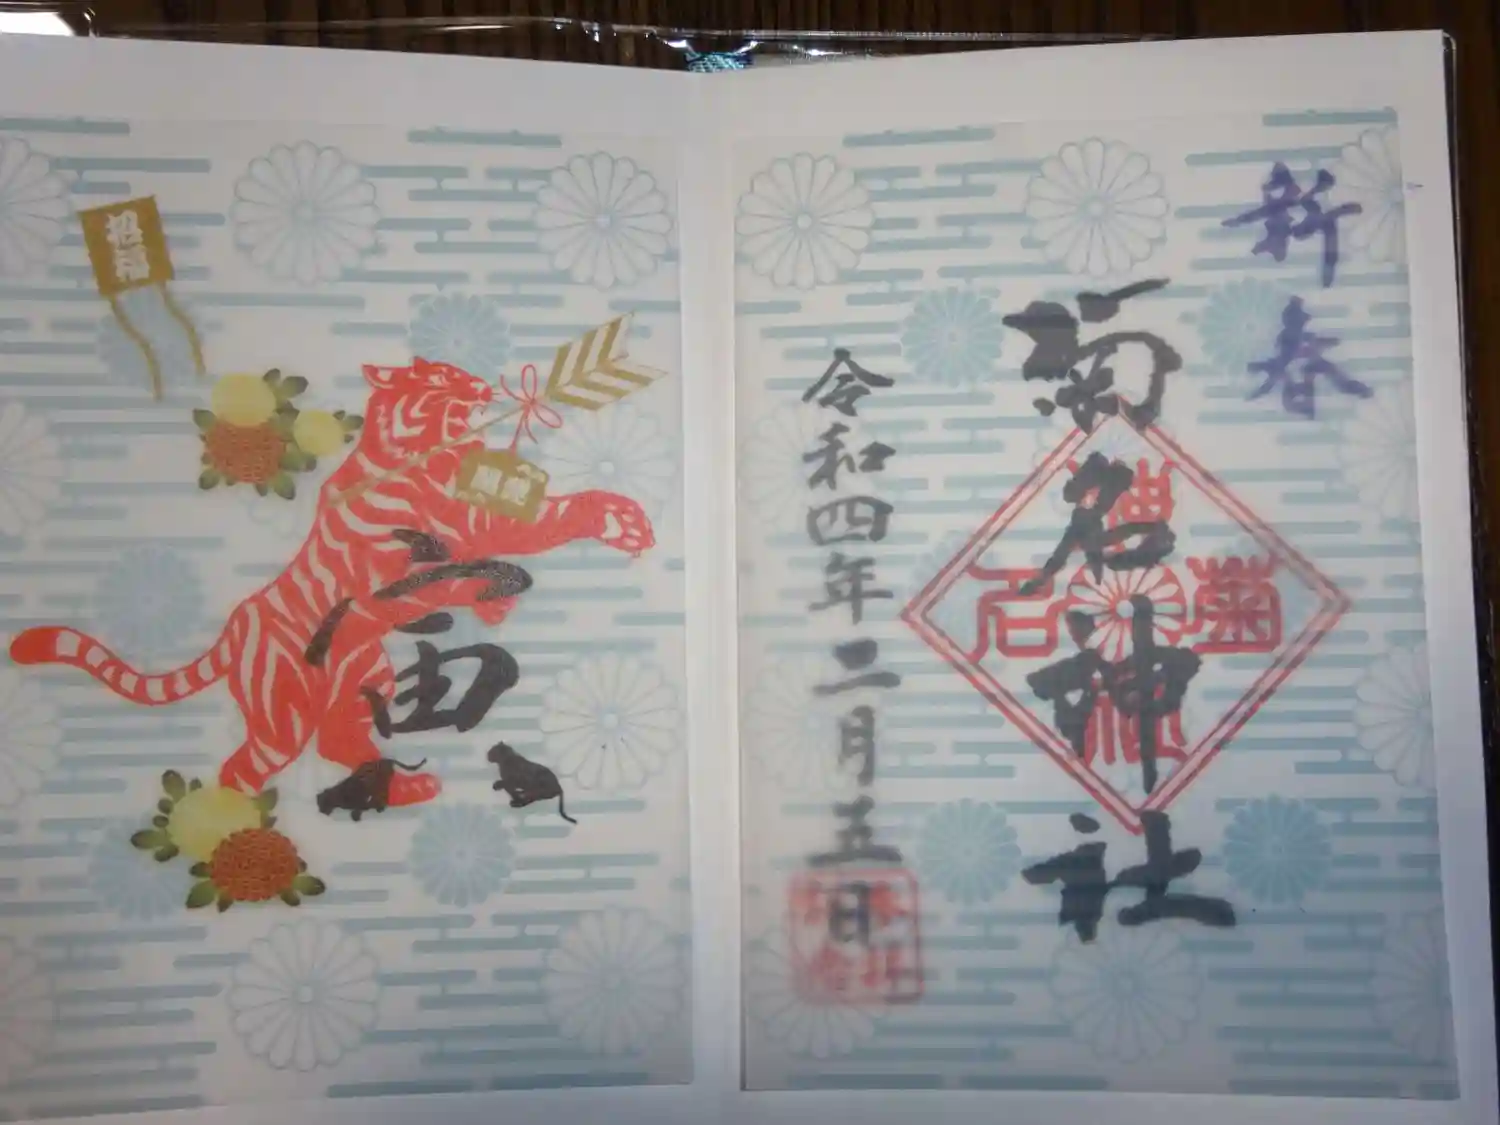 新春
菊名神社
菊名神社
令和四年二月五日
招福
寅